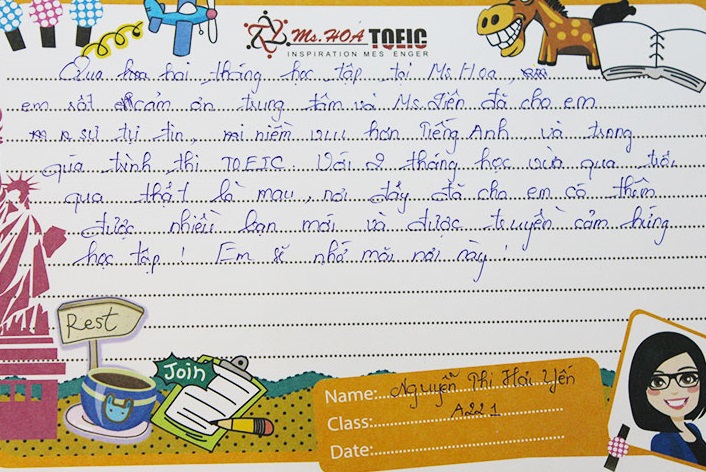 Ms. HOA TOEIC
INSPIRATION MESSENGER
Qua hơn hai tháng học tập tại Ms Hoa,
em rất cảm ơn trung tâm và Ms. đã cho em
sự tự tin, niềm vui hơn Tiếng Anh và trong
quá trình thi TOEIC. Với 2 tháng học vừa qua trôi
qua thật là mau, nơi đây đã cho em có thêm
được nhiều bạn mới và được truyền cảm hứng
học tập! Em sẽ nhớ mãi nơi này!
Rest
Join
Name: Nguyễn Phi Hải Yến
Class: A221
Date: